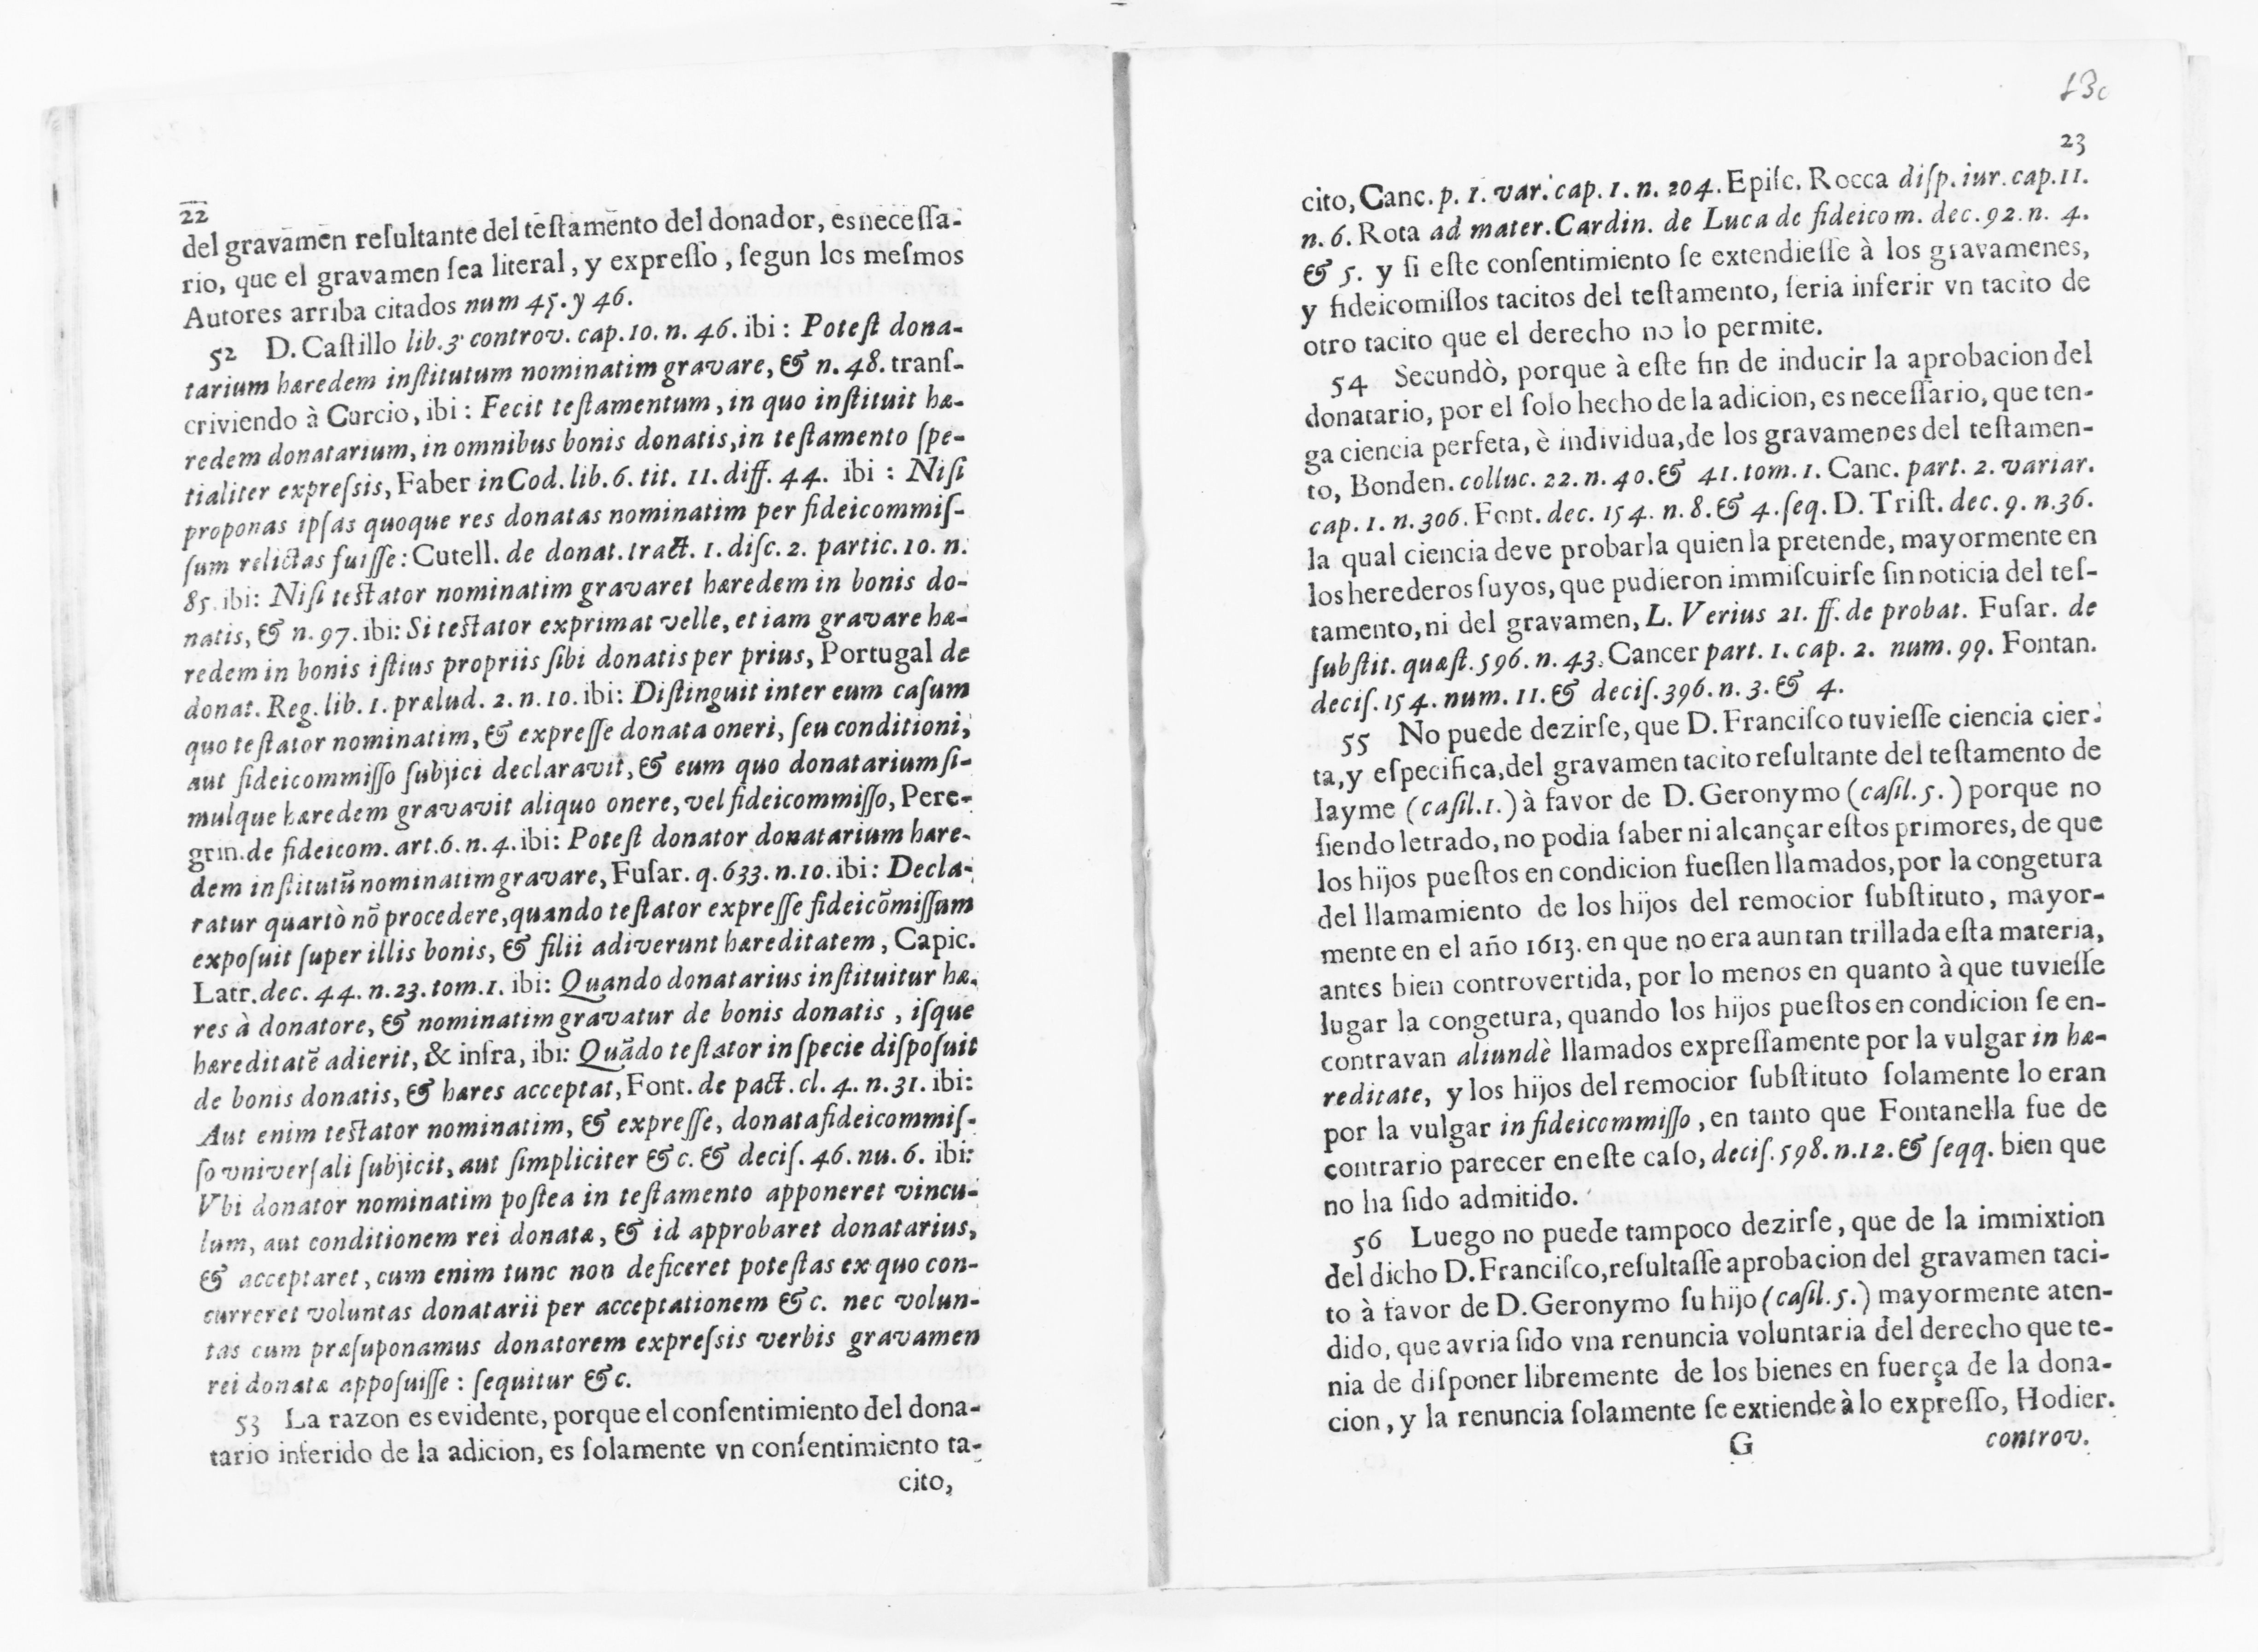 22
del gravamen resultante del testamento del donador, es necessa-
rio, que el gravamen sea literal, y expresso, segun los mesmos
Autores arriba citados num 45. y 46.
52 D. Castillo lib. 3. controv. cap. 10. n. 46. ibi: Potest dona-
tarium hæredem institutum nominatim gravare, & n. 48. trans-
criviendo à Curcio, ibi: Fecit testamentum, in quo instituit hæ-
redem donatarium, in omnibus bonis donatis, in testamento spe-
tialiter expressis, Faber in Cod. lib. 6. tit. 11. diff. 44. ibi: Nisi
proponas ipsas quoque res donatas nominatim per fideicommis-
sum relictas fuisse: Cutell. de donat. tract. 1. disc. 2. partic. 10. n.
85. ibi: Nisi testator nominatim gravaret hæredem in bonis do-
natis, & n. 97. ibi: Si testator exprimat velle, etiam gravare hæ-
redem in bonis istius propriis sibi donatis per prius, Portugal de
donat. Reg. lib. 1. prælud. 2. n. 10. ibi: Distinguit inter eum casum
quo testator nominatim, & expresse donata oneri, seu conditioni,
aut fideicommisso subjici declaravit, & eum quo donatarium si-
mulque hæredem gravavit aliquo onere, vel fideicommisso, Pere-
grin. de fideicom. art. 6. n. 4. ibi: Potest donator donatarium hære-
dem institutũ nominatim gravare, Fusar. q. 633. n. 10. ibi: Decla-
ratur quartò nõ procedere, quando testator expresse fideicõmissum
exposuit super illis bonis, & filii adiverunt hæreditatem, Capic.
Latr. dec. 44. n. 23. tom. 1. ibi: Quando donatarius instituitur hæ-
res à donatore, & nominatim gravatur de bonis donatis, isque
hæreditatẽ adierit, & infra, ibi: Quãdo testator in specie disposuit
de bonis donatis, & hæres acceptat, Font. de pact. cl. 4. n. 31. ibi:
Aut enim testator nominatim, & expresse, donata fideicommis-
so vniversali subjicit, aut simpliciter &c. & decis. 46. nu. 6. ibi:
Vbi donator nominatim postea in testamento apponeret vincu-
lum, aut conditionem rei donatæ, & id approbaret donatarius,
& acceptaret, cum enim tunc non deficeret potestas ex quo con-
curreret voluntas donatarii per acceptationem &c. nec volun-
tas cum præsuponamus donatorem expressis verbis gravamen
rei donatæ apposuisse: sequitur &c.
53 La razon es evidente, porque el consentimiento del dona-
tario inferido de la adicion, es solamente vn consentimiento ta-
cito,
23
cito, Canc. p. 1. var. cap. 1. n. 204. Episc. Rocca disp. iur. cap. 11.
n. 6. Rota ad mater. Cardin. de Luca de fideicom. dec. 92. n. 4.
& 5. y si este consentimiento se extendiesse à los gravamenes,
y fideicomissos tacitos del testamento, seria inferir vn tacito de
otro tacito que el derecho no lo permite.
54 Secundò, porque à este fin de inducir la aprobacion del
donatario, por el solo hecho de la adicion, es necessario, que ten-
ga ciencia perfeta, è individua, de los gravamenes del testamen-
to, Bonden. colluc. 22. n. 40. & 41. tom. 1. Canc. part. 2. variar.
cap. 1. n. 306. Font. dec. 154. n. 8. & 4. seq. D. Trist. dec. 9. n. 36.
la qual ciencia deve probarla quien la pretende, mayormente en
los herederos suyos, que pudieron immiscuirse sin noticia del tes-
tamento, ni del gravamen, L. Verius 21. ff. de probat. Fusar. de
substit. quæst. 596. n. 43. Cancer part. 1. cap. 2. num. 99. Fontan.
decis. 154. num. 11. & decis. 396. n. 3. & 4.
55 No puede dezirse, que D. Francisco tuviesse ciencia cier-
ta, y especifica, del gravamen tacito resultante del testamento de
Iayme (casil. 1.) à favor de D. Geronymo (casil. 5.) porque no
siendo letrado, no podia saber ni alcançar estos primores, de que
los hijos puestos en condicion fuessen llamados, por la congetura
del llamamiento de los hijos del remocior substituto, mayor-
mente en el año 1613. en que no era aun tan trillada esta materia,
antes bien controvertida, por lo menos en quanto à que tuviesse
lugar la congetura, quando los hijos puestos en condicion se en-
contravan aliundè llamados expressamente por la vulgar in hæ-
reditate, y los hijos del remocior substituto solamente lo eran
por la vulgar in fideicommisso, en tanto que Fontanella fue de
contrario parecer en este caso, decis. 598. n. 12. & seqq. bien que
no ha sido admitido.
56 Luego no puede tampoco dezirse, que de la immixtion
del dicho D. Francisco, resultasse aprobacion del gravamen taci-
to à favor de D. Geronymo su hijo (casil. 5.) mayormente aten-
dido, que avria sido vna renuncia voluntaria del derecho que te-
nia de disponer libremente de los bienes en fuerça de la dona-
cion, y la renuncia solamente se extiende à lo expresso, Hodier.
G controv.